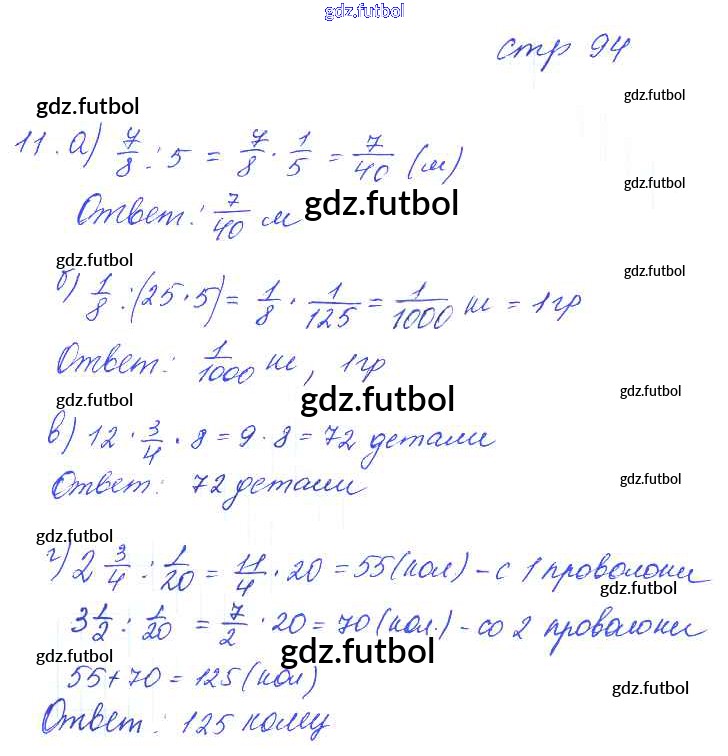 gdz.futbol
стр 94
gdz.futbol
gdz.futbol
11. а) 7/8 : 5 = 7/8 · 1/5 = 7/40 (м)
gdz.futbol
Ответ: 7/40 м
gdz.futbol
gdz.futbol
gdz.futbol
б) 1/8 : (25 · 5) = 1/8 · 1/125 = 1/1000 кг = 1 гр
Ответ: 1/1000 кг, 1 гр
gdz.futbol
gdz.futbol
gdz.futbol
в) 12 · 3/4 · 8 = 9 · 8 = 72 детали
gdz.futbol
Ответ: 72 детали
gdz.futbol
г) 2 3/4 : 1/20 = 11/4 · 20 = 55 (кол) - с 1 проволоки
gdz.futbol
3 1/2 : 1/20 = 7/2 · 20 = 70 (кол.) - со 2 проволоки
gdz.futbol
gdz.futbol
55 + 70 = 125 (кол)
gdz.futbol
Ответ: 125 колец